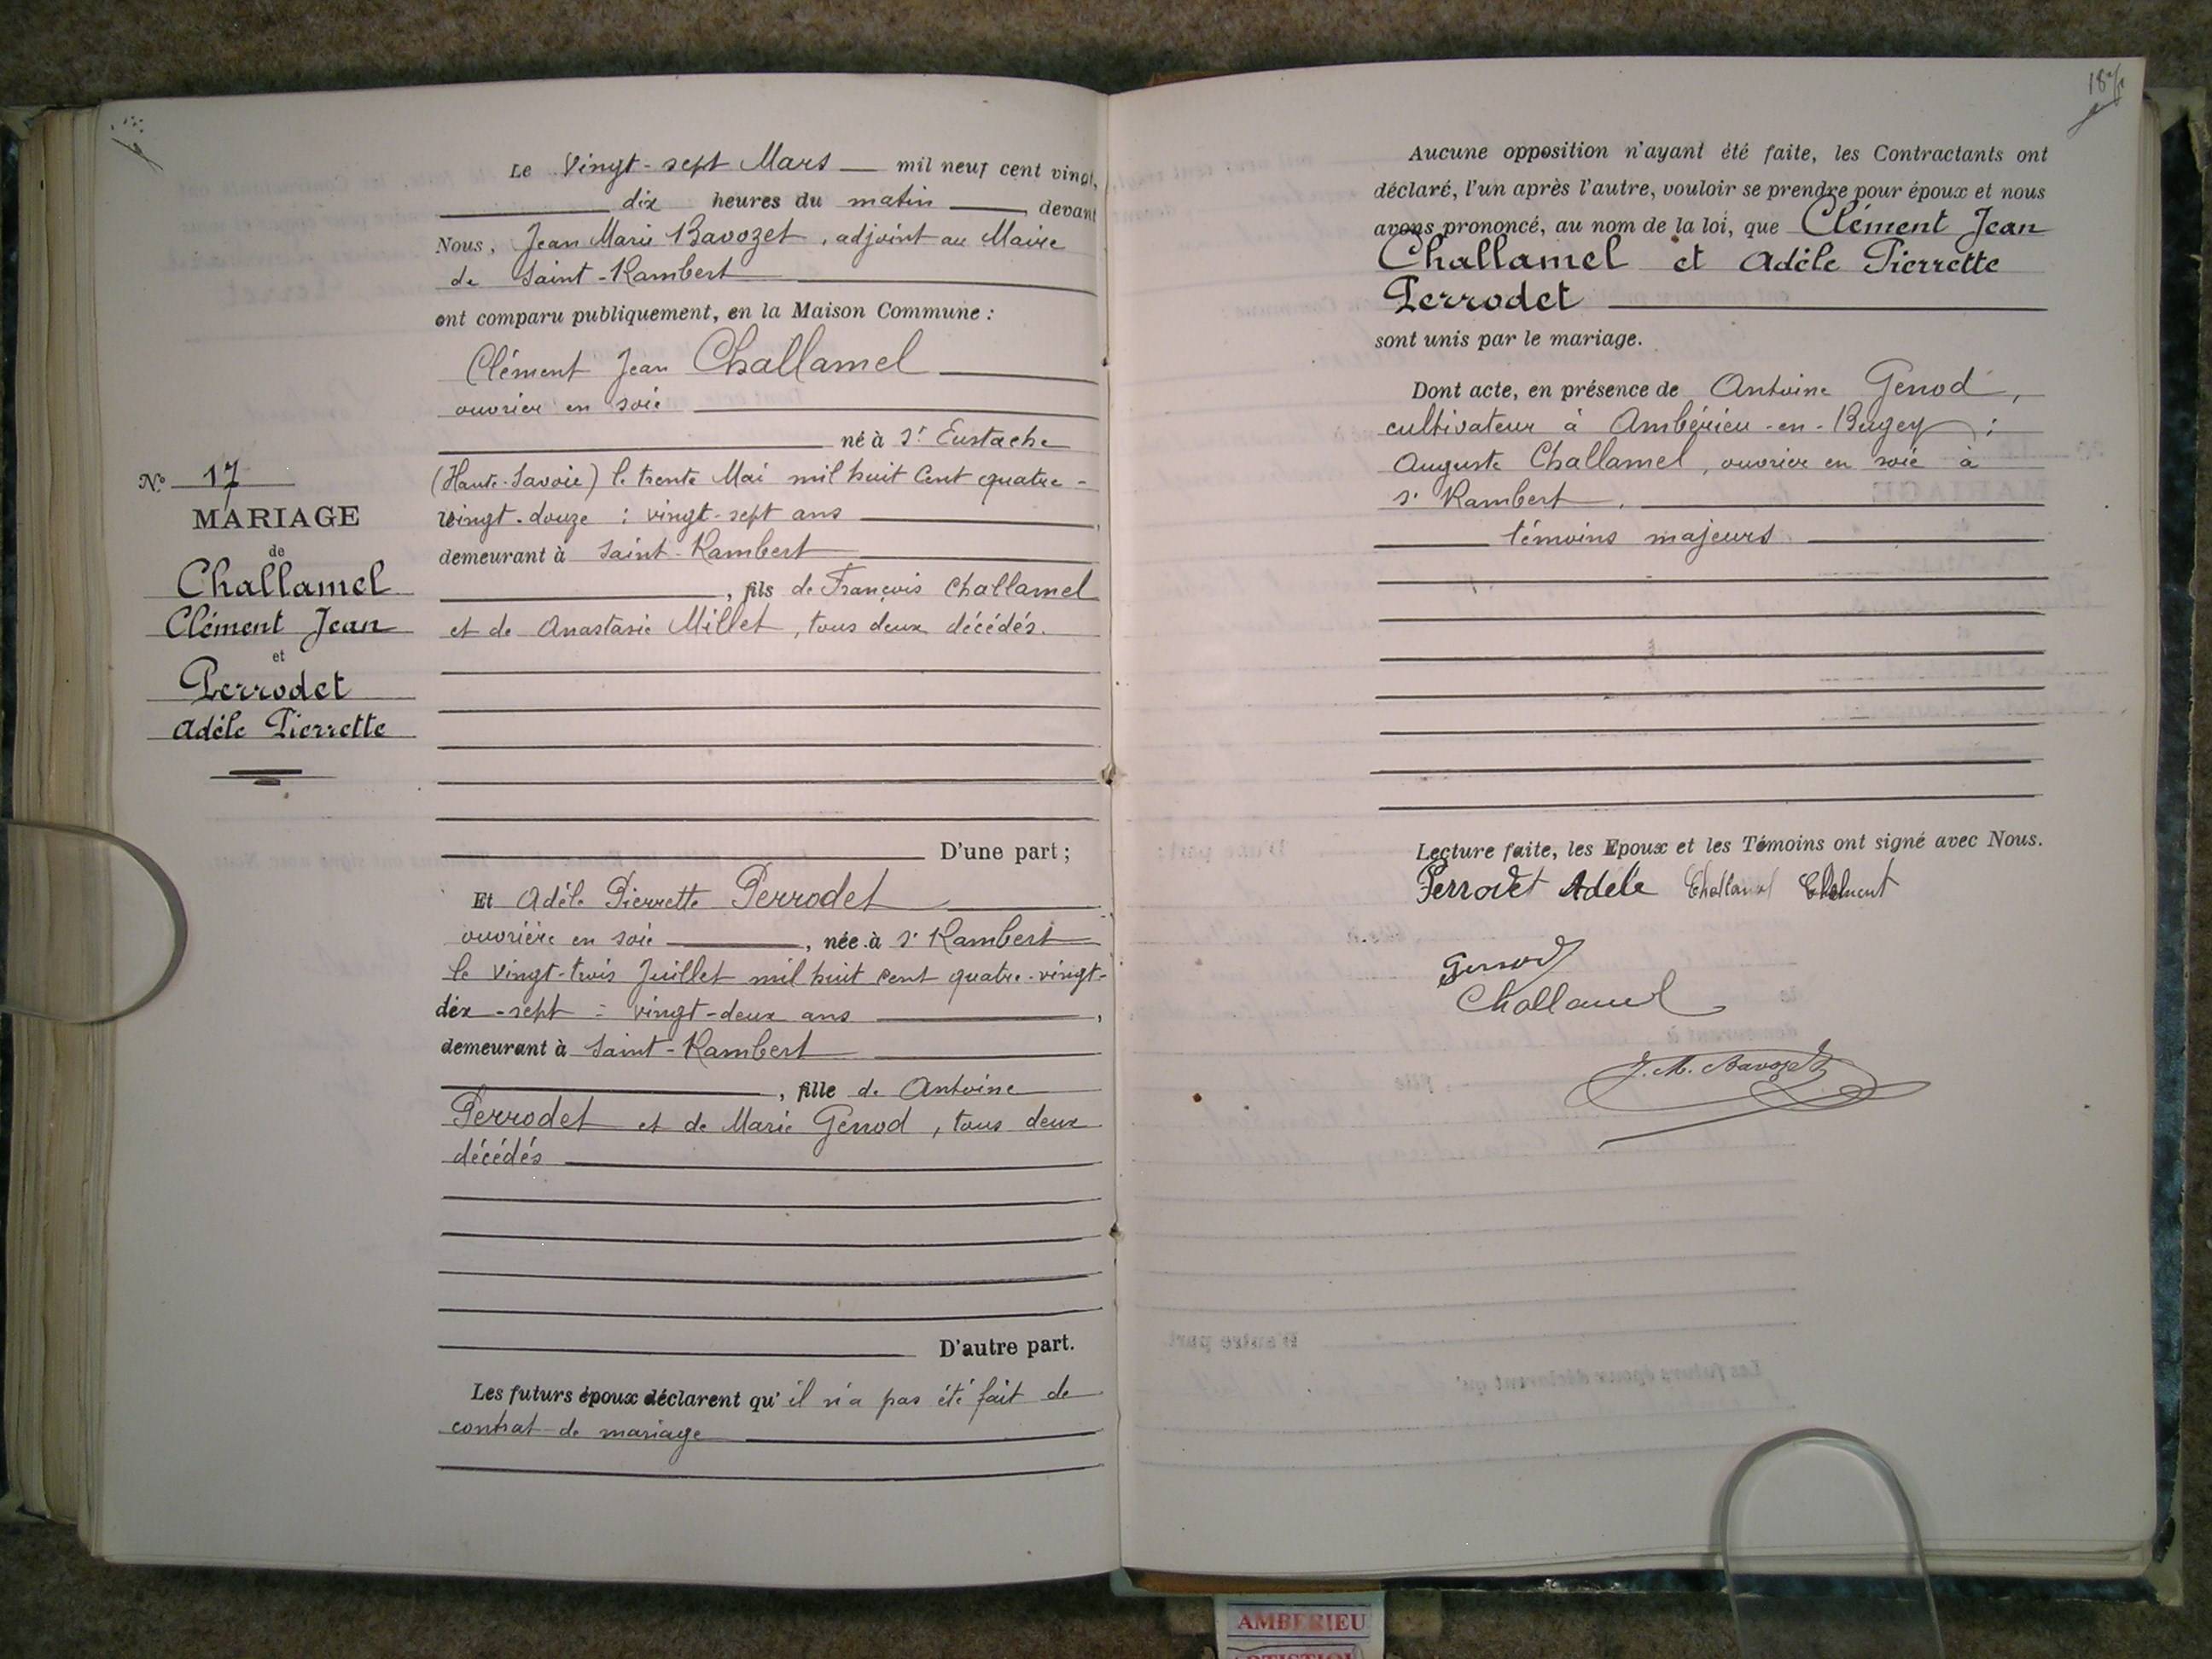 Le Vingt-sept Mars mil neuf cent vingt,
dix heures du matin devant
Nous, Jean Marie Bavozet, adjoint au Maire
de Saint-Rambert
ont comparu publiquement, en la Maison Commune :
Clément Jean Challamel
ouvrier en soie
né à St Eustache
(Haute-Savoie) le trente Mai mil huit Cent quatre-
vingt-douze : vingt-sept ans
demeurant à Saint-Rambert
, fils de François Challamel
et de Anastasie Millet, tous deux décédés.
D'une part ;
Et Adèle Pierrette Perrodet
ouvrière en soie, née à St Rambert
le vingt-trois Juillet mil huit cent quatre-vingt-
dix-sept : vingt-deux ans,
demeurant à Saint-Rambert
, fille de Antoine
Perrodet et de Marie Genod, tous deux
décédés
D'autre part.
Les futurs époux déclarent qu'il n'a pas été fait de
contrat de mariage
No 17
MARIAGE
de
Challamel
Clément Jean
et
Perrodet
Adèle Pierrette
Aucune opposition n'ayant été faite, les Contractants ont
déclaré, l'un après l'autre, vouloir se prendre pour époux et nous
avons prononcé, au nom de la loi, que Clément Jean
Challamel et Adèle Pierrette
Perrodet
sont unis par le mariage.
Dont acte, en présence de Antoine Genod,
cultivateur à Ambérieu-en-Bugey ;
Auguste Challamel, ouvrier en soie à
St Rambert.
témoins majeurs
Lecture faite, les Epoux et les Témoins ont signé avec Nous.
Perrodet Adèle Challamel Clément
Genod
Challamel
J. M. Bavozet
AMBERIEU